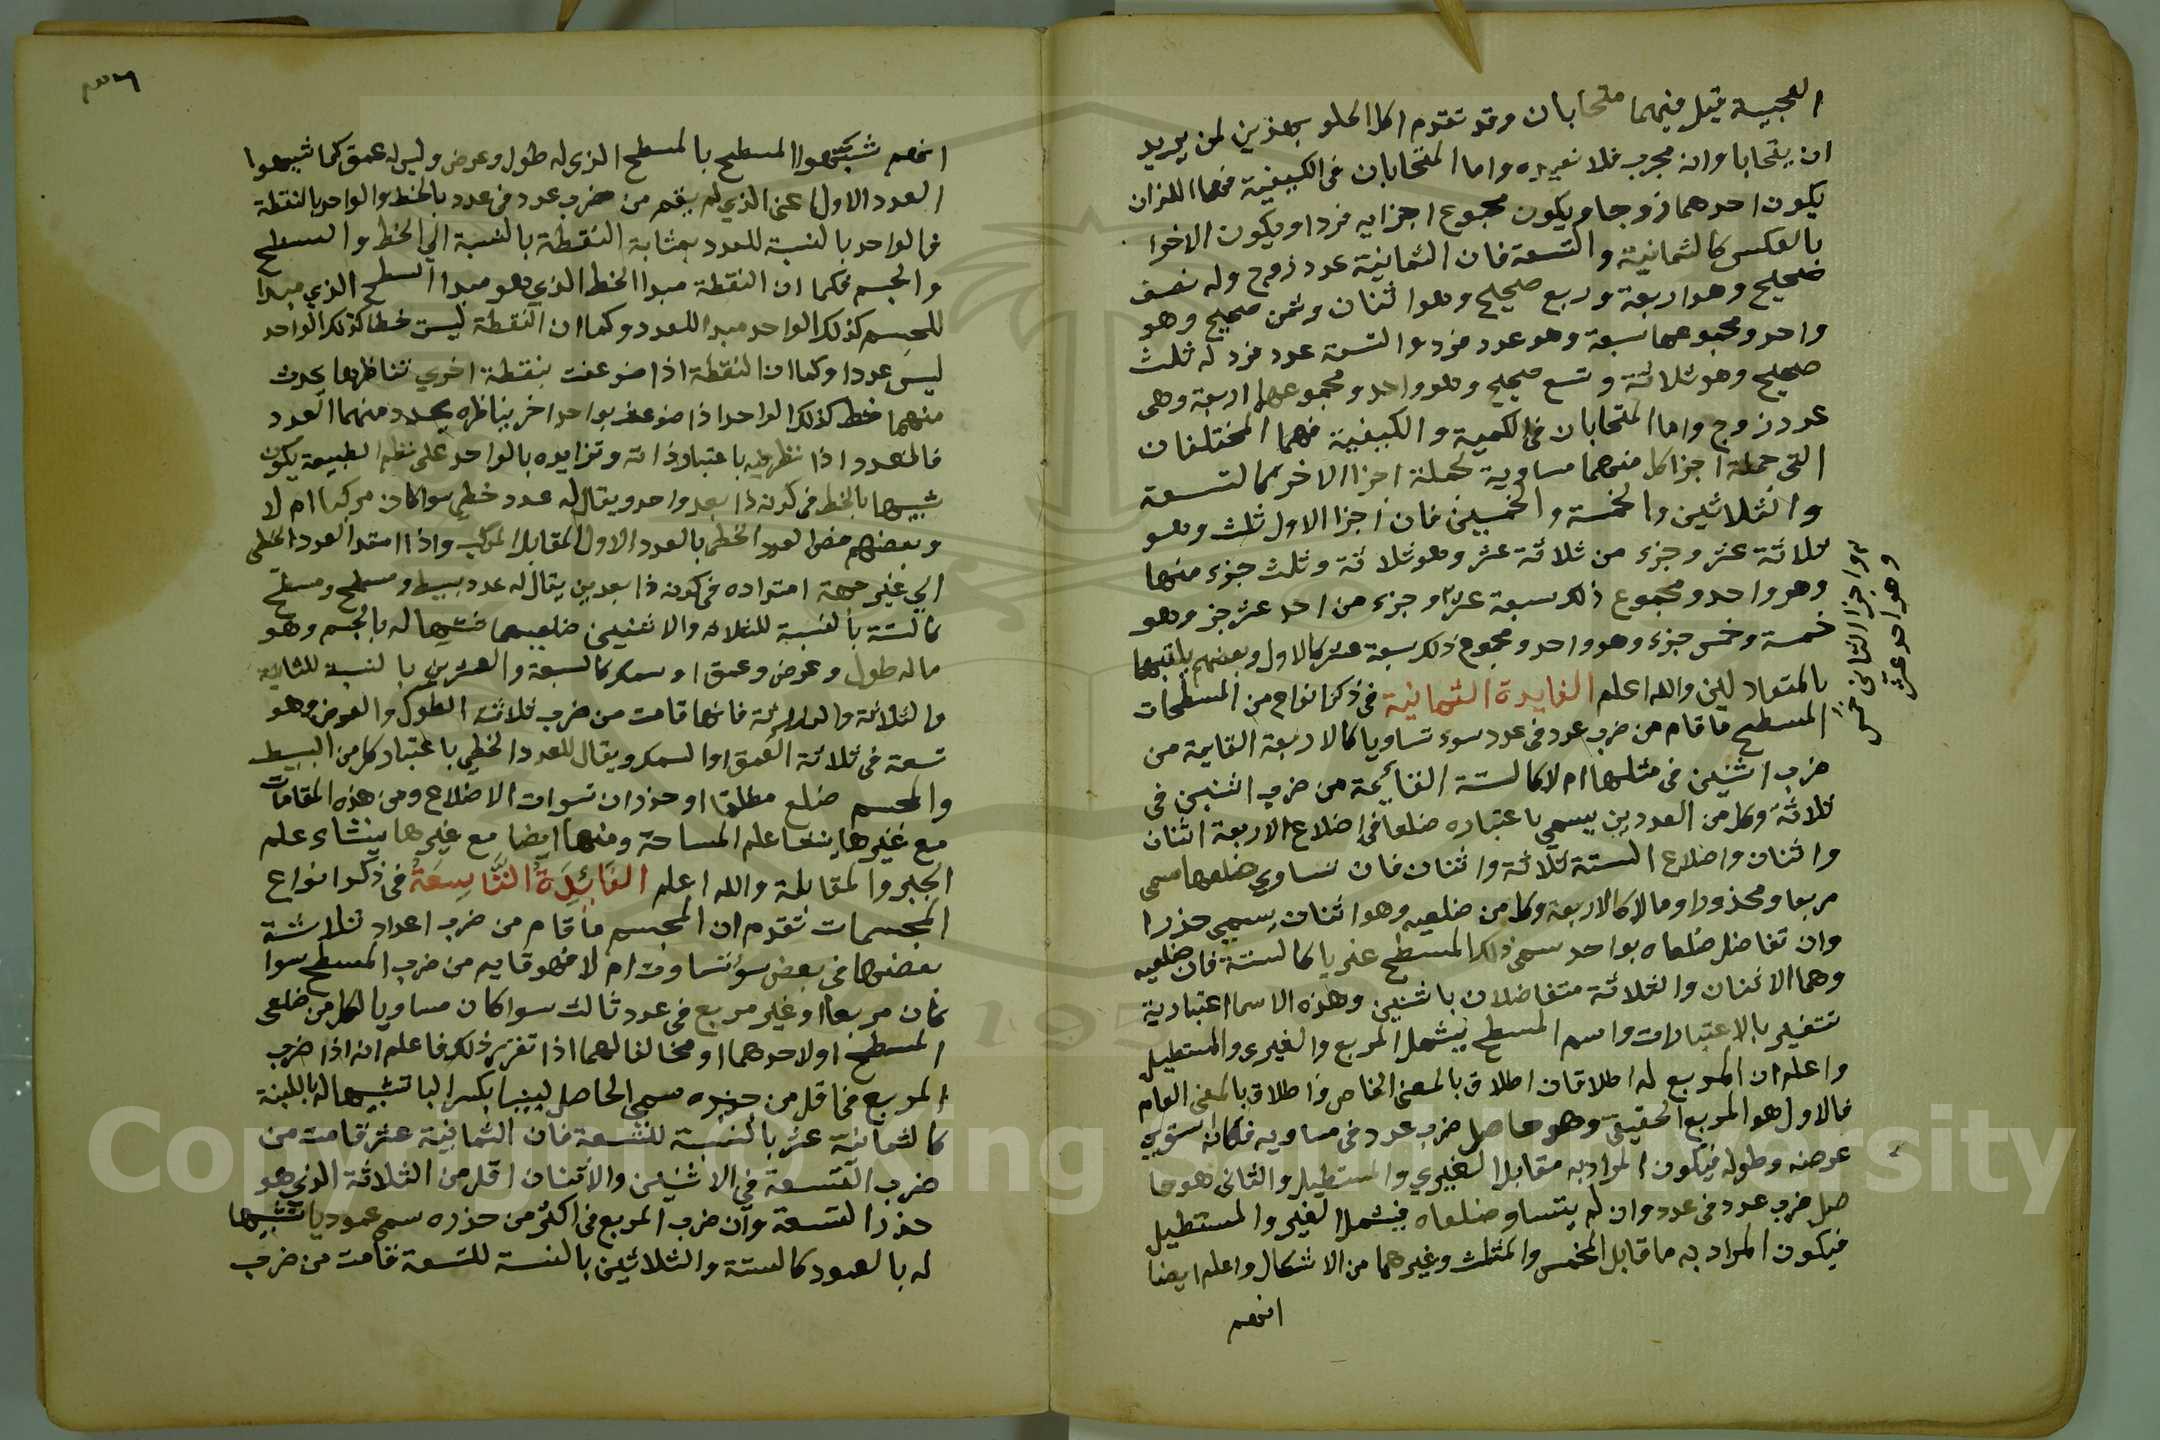 العجيبة قيل فيهما متحابان وقد تقدم اكل الحلو بهذين لمن يريد
ان يتحابا وانه مجرب فلا نعيده واما المتحابان في الكيفية فهما اللذان
يكون احدهما زوجا ويكون مجموع اجزايه فردا ويكون الاخر
بالعكس كالثمانية والتسعة فان الثمانية عدد زوج وله نصف
صحيح وهو اربعة وربع صحيح وهو اثنان وثمن صحيح وهو
واحد ومجموعها سبعة وهو عدد فرد والتسعة عدد فرد له ثلث
صحيح وهو ثلاثة وتسع صحيح وهو واحد ومجموعهما اربعة وهي
عدد زوج واما المتحابان في الكمية والكيفية فهما المختلفان
التي جملة اجزا كل منهما مساوية لجملة اجزا الاخر كالتسعة
والثلاثين والخمسة والخمسين فان اجزا الاول ثلث وهو
ثلاثة عشر وجزء من ثلاثة عشر وهو ثلاثة وثلث جزء منها
وهو واحد ومجموع ذلك سبعة عشر وجزء من احد عشر جز وهو
خمسة وخمس جزء وهو واحد ومجموع ذلك سبعة عشر كالاول وبعضهم يلقبها
بالمتعادلين والله اعلم الفايدة الثمانية في ذكر انواع من المسطحات
المسطح ما قام من ضرب عدد في عدد سوء تساويا كالاربعة القايمة من
ضرب اثنين في مثلها ام لا كالستة القائمة من ضرب اثنين في
ثلاثة وكل من العددين يسمي باعتباره ضلعا في اضلاع الاربعة اثنان
واثنان واضلاع الستة ثلاثة واثنان فان تساوي ضلعها سمي
مربعا ومجذورا ومالا كالاربعة وكل من ضلعيه وهو اثنان يسمي جذرا
وان تفاضل ضلعاه بواحد سمي ذلك المسطح غيريا كالستة فان ضلعيه
وهما الاثنان والثلاثة متفاضلان باثنين وهذه الاسما اعتبارية
تتغير بالاعتبارات واسم المسطح يشمل المربع والغيري والمستطيل
واعلم ان المربع له اطلاقان اطلاق بالمعنى الخاص واطلاق بالمعنى العام
فالاول هو المربع الحقيقي وهو حاصل ضرب عدد في مساويه فكانه ستوي
عرضه وطوله فيكون المراد به مقابل الغيري والمستطيل والثاني هو حا
صل ضرب عدد في عدد وان لم يتساو ضلعاه فيشمل الغير والمستطيل
فيكون المراد به ما قابل المخمس والمثلث وغيرهما من الاشكال واعلم ايضا
انهم
واجزا الثاني خمس
وهو احد عشر
٣٦
انهم شبهوا المسطح بالمسطح الذي له طول وعرض وليس له عمق كما شبهوا
العدد الاول اعني الذي لم يقم من ضرب عدد في عدد بالخط والواحد بالنقطة
فالواحد بالنسبة للعدد بمثابة النقطة بالنسبة الي الخط والسطح
والجسم فكما ان النقطة مبدا الخط الذي هو مبدا السطح الذي مبدا
للجسم كذلك الواحد مبدا للعدد وكما ان النقطة ليست خطا كذلك الواحد
ليس عددا وكما ان النقطة اذا ضوعفت بنقطة اخري تناظرها يحدث
منهما خط كذلك الواحد اذا ضوعف بواحد اخر يناظره يحدد منهما العدد
فالعدد اذا نظر اليه باعتبار ذاته وتزايده بالواحد على نظم الطبيعة يكون
شبيها بالخط في كونه ذا بعد واحد ويقال له عدد خطي سوا كان مركبا ام لا
وبعضهم خص العدد الخطي بالعدد الاول المقابل المركب واذا امتد العدد الخطي
الي غير جهة امتداده في كونه ذا بعدين يقال له عدد بسيط ومسطح ومسطح
كالستة بالنسبة للثلاثة والاثنين ضلعيها تشبيها له بالجسم وهو
ماله طول وعرض وعمق او سمك كالسبعة والعشرين بالنسبة للثلاثة
والثلاثة والثلاثة فانها قامت من ضرب ثلاثة الطول والعرض وهو
تسعة في ثلاثة العمق او السمك ويقال للعدد الخطي باعتبار كل من البسيط
والمجسم ضلع مطلقا او جذر ان تسوات الاضلاع ومن هذه المقامات
مع غيرها ينشا علم المساحة ومنها ايضا مع غيرها ينشاء علم
الجبر والمقابلة والله اعلم الفَائِدَةُ التَّاسِعَةُ في ذكر انواع
المجسمات تقدم ان المجسم ما قام من ضرب اعداد ثلاثة
بعضها في بعض سوء تساوت ام لا فهو قايم من ضرب المسطح سوا
كان مربعا او غير مربع في عدد ثالث سوا كان مساويا لكل من ضلعي
المسطح او لاحدهما او مخالفا لهما اذا تقرر ذلك فاعلم انه اذا ضرب
المربع في اقل من جذره سمي الحاصل لبنيا بكسر البا تشبيها له باللبنة
كالثمانية عشر بالنسبة للتسعة فان الثمانية عشر قامت من
ضرب التسعة في الاثنين والاثنان اقل من الثلاثة الذي هو
جذر التسعة وان ضرب المربع في اكثر من جذره سمي عموديا تشبيها
له بالعمود كالستة والثلاثين بالنسبة للتسعة قامت من ضرب